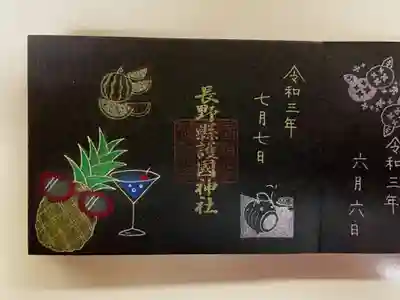 令和三年
六月六日
令和三年
七月七日
長野縣護國神社